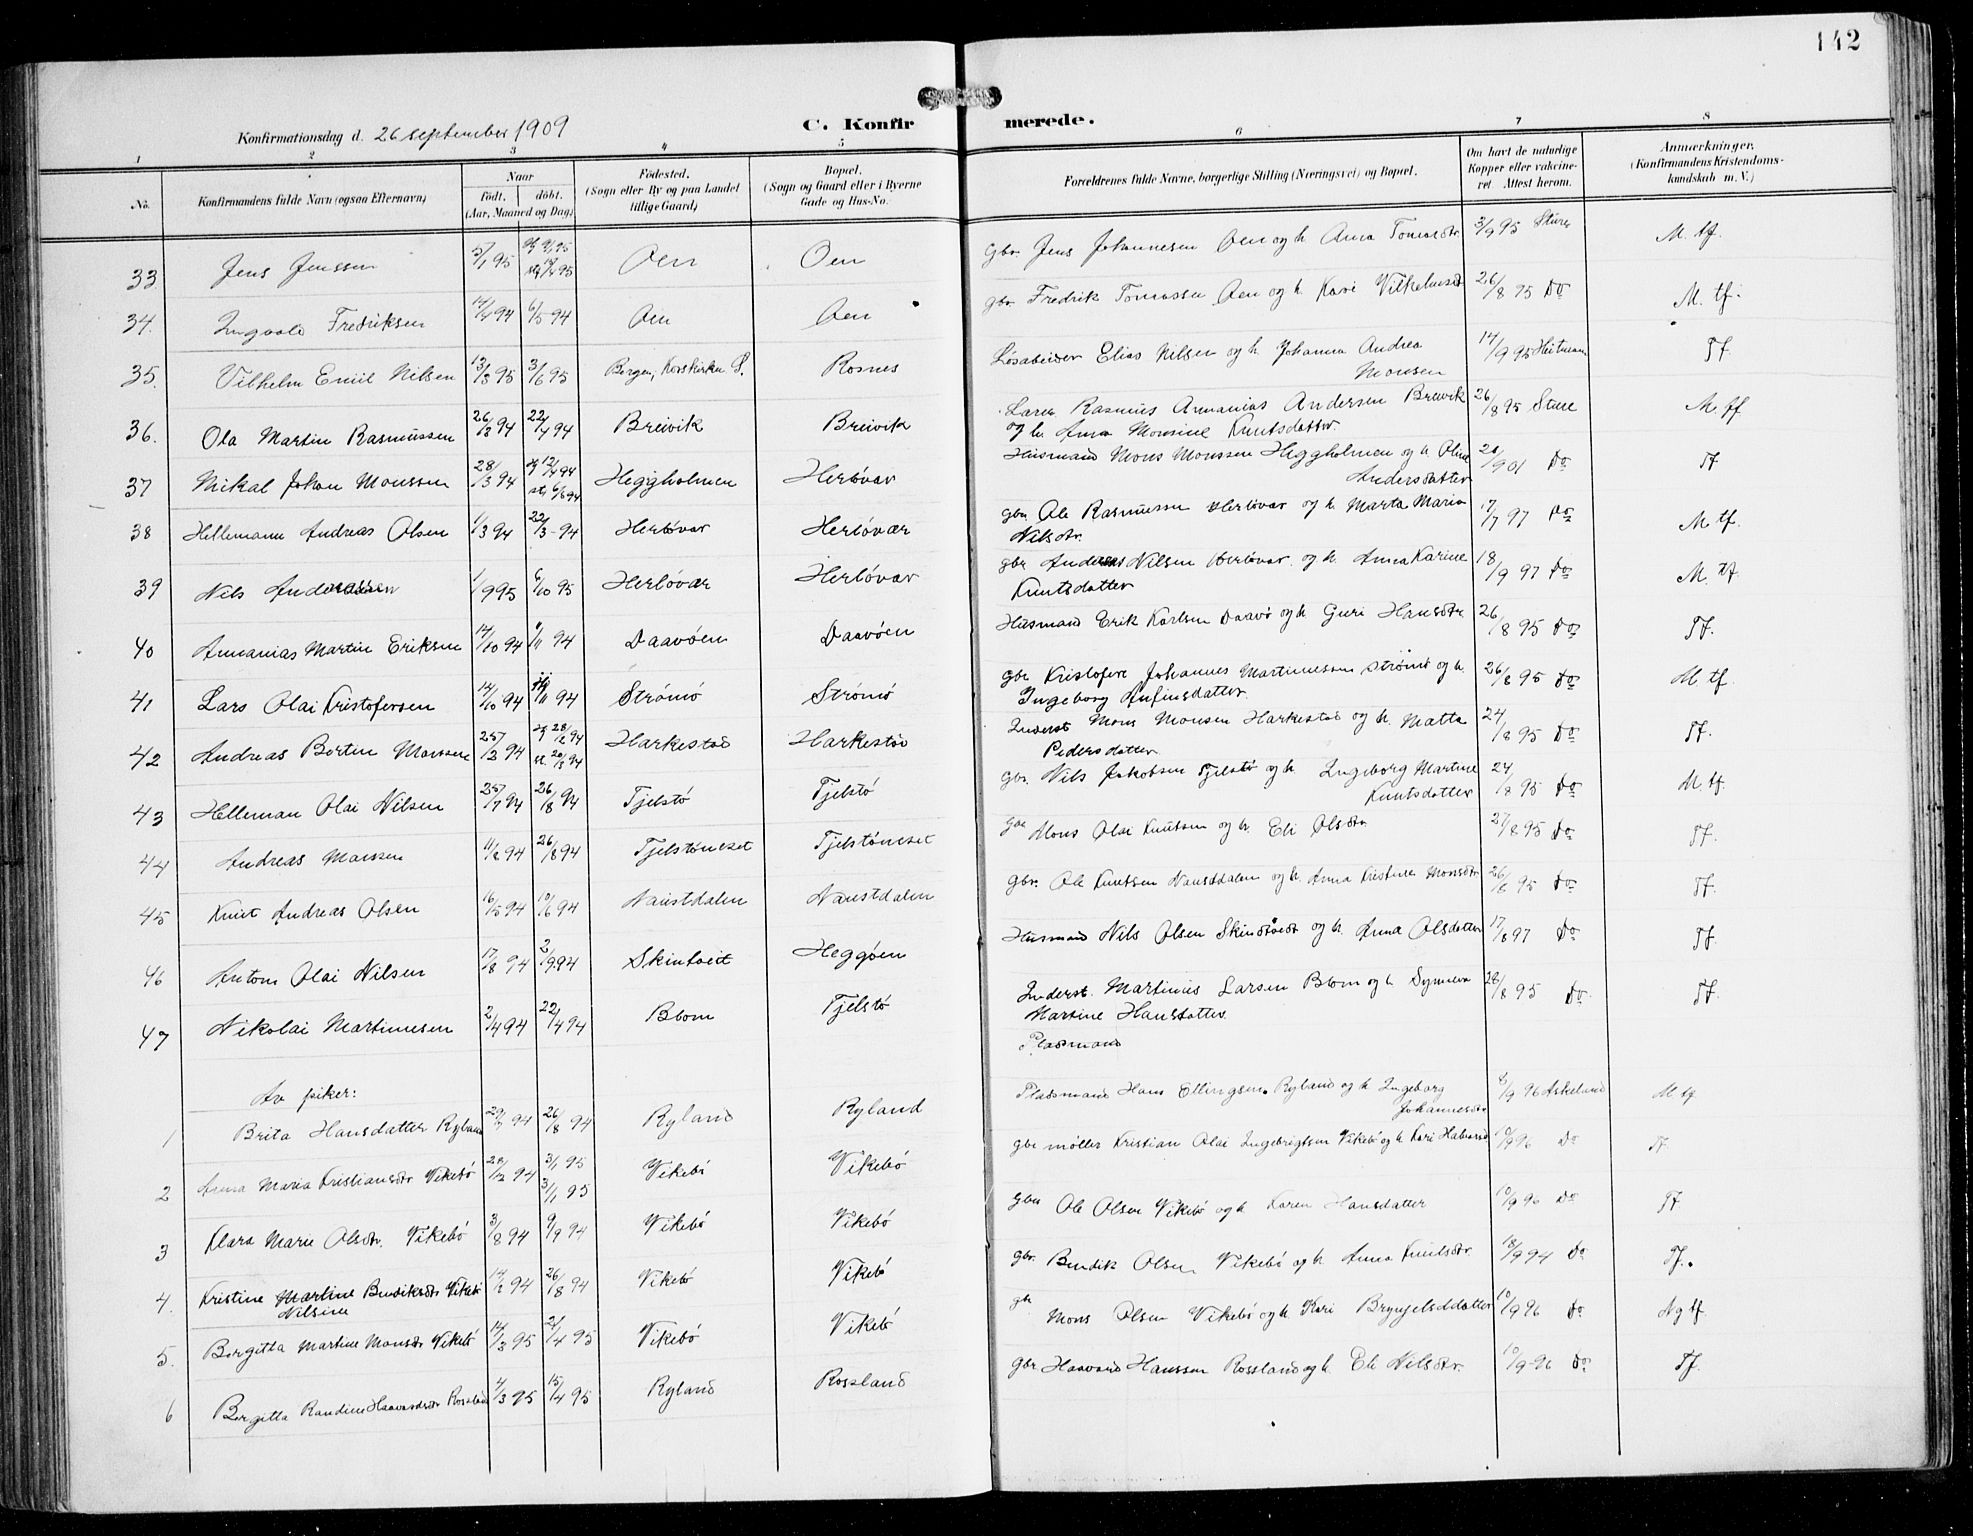 142
Konfirmationsdag d. 26 september 1909
C. Konfirmerede.
1 2 3 4 5 6 7 8
No. Konfirmandens fulde Navn (ogsaa Efternavn) Naar født. døbt. (Aar, Maaned og Dag) Fødested. (Sogn eller By og paa Landet tillige Gaard) Bopæl. (Sogn og Gaard eller i Byerne Gade og Hus-No. Forældrenes fulde Navne, borgerlige Stilling (Næringsvei) og Bopæl. Om havt de naturlige Kopper eller vakcineret. Attest herom. Anmærkninger. (Konfirmandens Kristendomskundskab m. V.)
33 Jens Jenssen 5/1 95 Oen Oen Gbr. Jens Johannesen Oen og h. Anna Tomasdtr. 3/9 95 Sture M. tf.
34. Ingvald Fredriksen 14/4 94 6/5 94 Oen Oen gbr. Fredrik Tomassen Oen og h. Kari 26/8 95 Do M. tf.
35. Vilhelm Emil Nilsen 13/3 95 3/6 95 Bergen, Korskirken S. Rosnes Løsarbeider Elias Nilsen og h. Johanna Andrea Monsen 14/9 95 Heitmann Tf.
36. Ola Martin Rasmussen 26/3 94 22/4 94 Breivik Breivik Lærer Rasmus Annanias Andersen Breivik og h. Anna Monsine Knutsdatter. 26/8 95 Sture M. tf
37 Mikal Johan Monssen 28/3 94 Heggholmen Herløvær Husmand Mons Monssen Heggholmen og h. Oline Andersdatter Do Tf
38 Hellemann Andreas Olsen 1/3 94 22/3 94 Herløvær Herløvær gbr. Ole Rasmussen Herløvær og h. Marta Maria Nilsdtr. 17/7 97 Do M tf.
39 Nils Anderssen 1/9 95 6/10 95 Herløvær Herløvær gbr Anders Nilsen Herløvær og h. Anna Karine Knutsdatter 18/9 97 Do M. tf.
40 Annanias Martin Eriksen 14/10 94 94 Daavøen Daavøen Husmand Erik Karlsen Daavø og h. Guri Hansdtr. 26/8 95 Do Tf.
41 Lars Olai Kristofersen 14/10 94 94 Strømø Strømø gbr Kristofer Johannes Martinussen Strømø og h. Ingeborg Anfinsdatter. 26/8 95 Do M. tf.
42 Andreas Bertin Monssen 25/2 94 Harkestad Harkestad Inderst Mons Monsen Harkestad og h. Matta Pedersdatter 24/8 95 Do Tf.
43 Helleman Olai Nilsen 25/7 94 26/8 94 Tjelstø Tjelstø gbr. Nils Jakobsen Tjelstø og h. Ingeborg Martine Knutsdatter 24/8 95 Do M. tf.
44 Andreas Monssen 11/8 94 26/8 94 Tjelstøneset Tjelstøneset Gbr Mons Olai Knutsen og h. Eli Olsdtr. 27/8 95 Do Tf.
45 Knut Andreas Olsen 16/5 94 10/6 94 Naustdalen Naustdalen Gbr. Ole Knutsen Naustdalen og h. Anna Kristine Monsdtr 95 Do Tf.
46 Anton Olai Nilsen 17/8 94 2/9 94 Skintveit Heggøen Husmand Nils Olsen og h. Anna Olsdatter 17/8 97 Do Tf.
47 Nikolai Martinusen 2/4 94 22/4 94 Blom Tjelstø Inderst. Martinus Larsen Blom og h Synneva Martine Hansdatter. 28/8 95 Do. Tf.
Pladsmand
Av piker:
1 Brita Hansdatter Ryland 94 26/8 94 Ryland Ryland Pladsmand Hans Ellingsen Ryland og h Ingeborg Johannesdtr 8/9 96 Askeland M tf
2 Anna Maria Kristiansdtr Vikebø 94 3/1 95 3/1 95 Vikebø Vikebø gbr møller Kristian Olai Ingebrigtsen Vikebø og h Kari 10/9 96 Do Tf.
3 Klara Marie Olsdtr. Vikebø 3/8 94 9/9 94 Vikebø Vikebø Gbr Ole Olsen Vikebø og h Karen Hansdatter 10/9 96 Do Tf.
4. Kristine Martine Bendiksdtr Vikebø Nilsine 94 26/8 94 Vikebø Vikebø gbr. Bendik Olsen Vikebø og h Anna Knutsdtr. 18/9 94 Do Tf.
5. Bergitta Martine Monsdtr Vikebø 14/3 95 21/4 95 Vikebø Vikebø gbr Mons Olsen Vikebø og h Kari Brynjelsddatter 10/9 96 Do Ng tf.
6 Bergitta Randine Haavardsdtr Rossland 4/3 95 15/4 95 Ryland Rossland gbr Haavard Hanssen Rossland og h Eli Nilsdtr. 10/9 96 Do Tf.